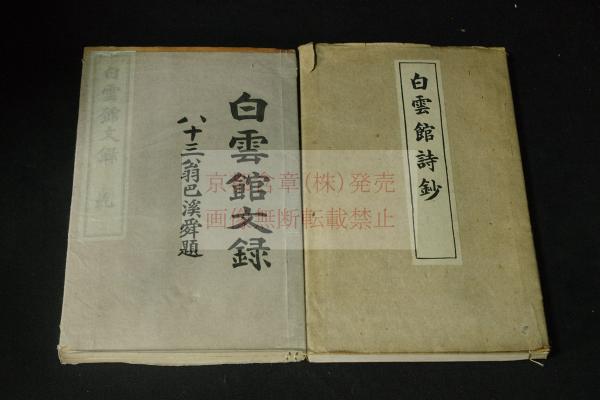 白雲館詩鈔
白雲館文録
八十三翁巴溪舜題
白雲館文録 乾
京都含章(株)発売
画像無断転載禁止